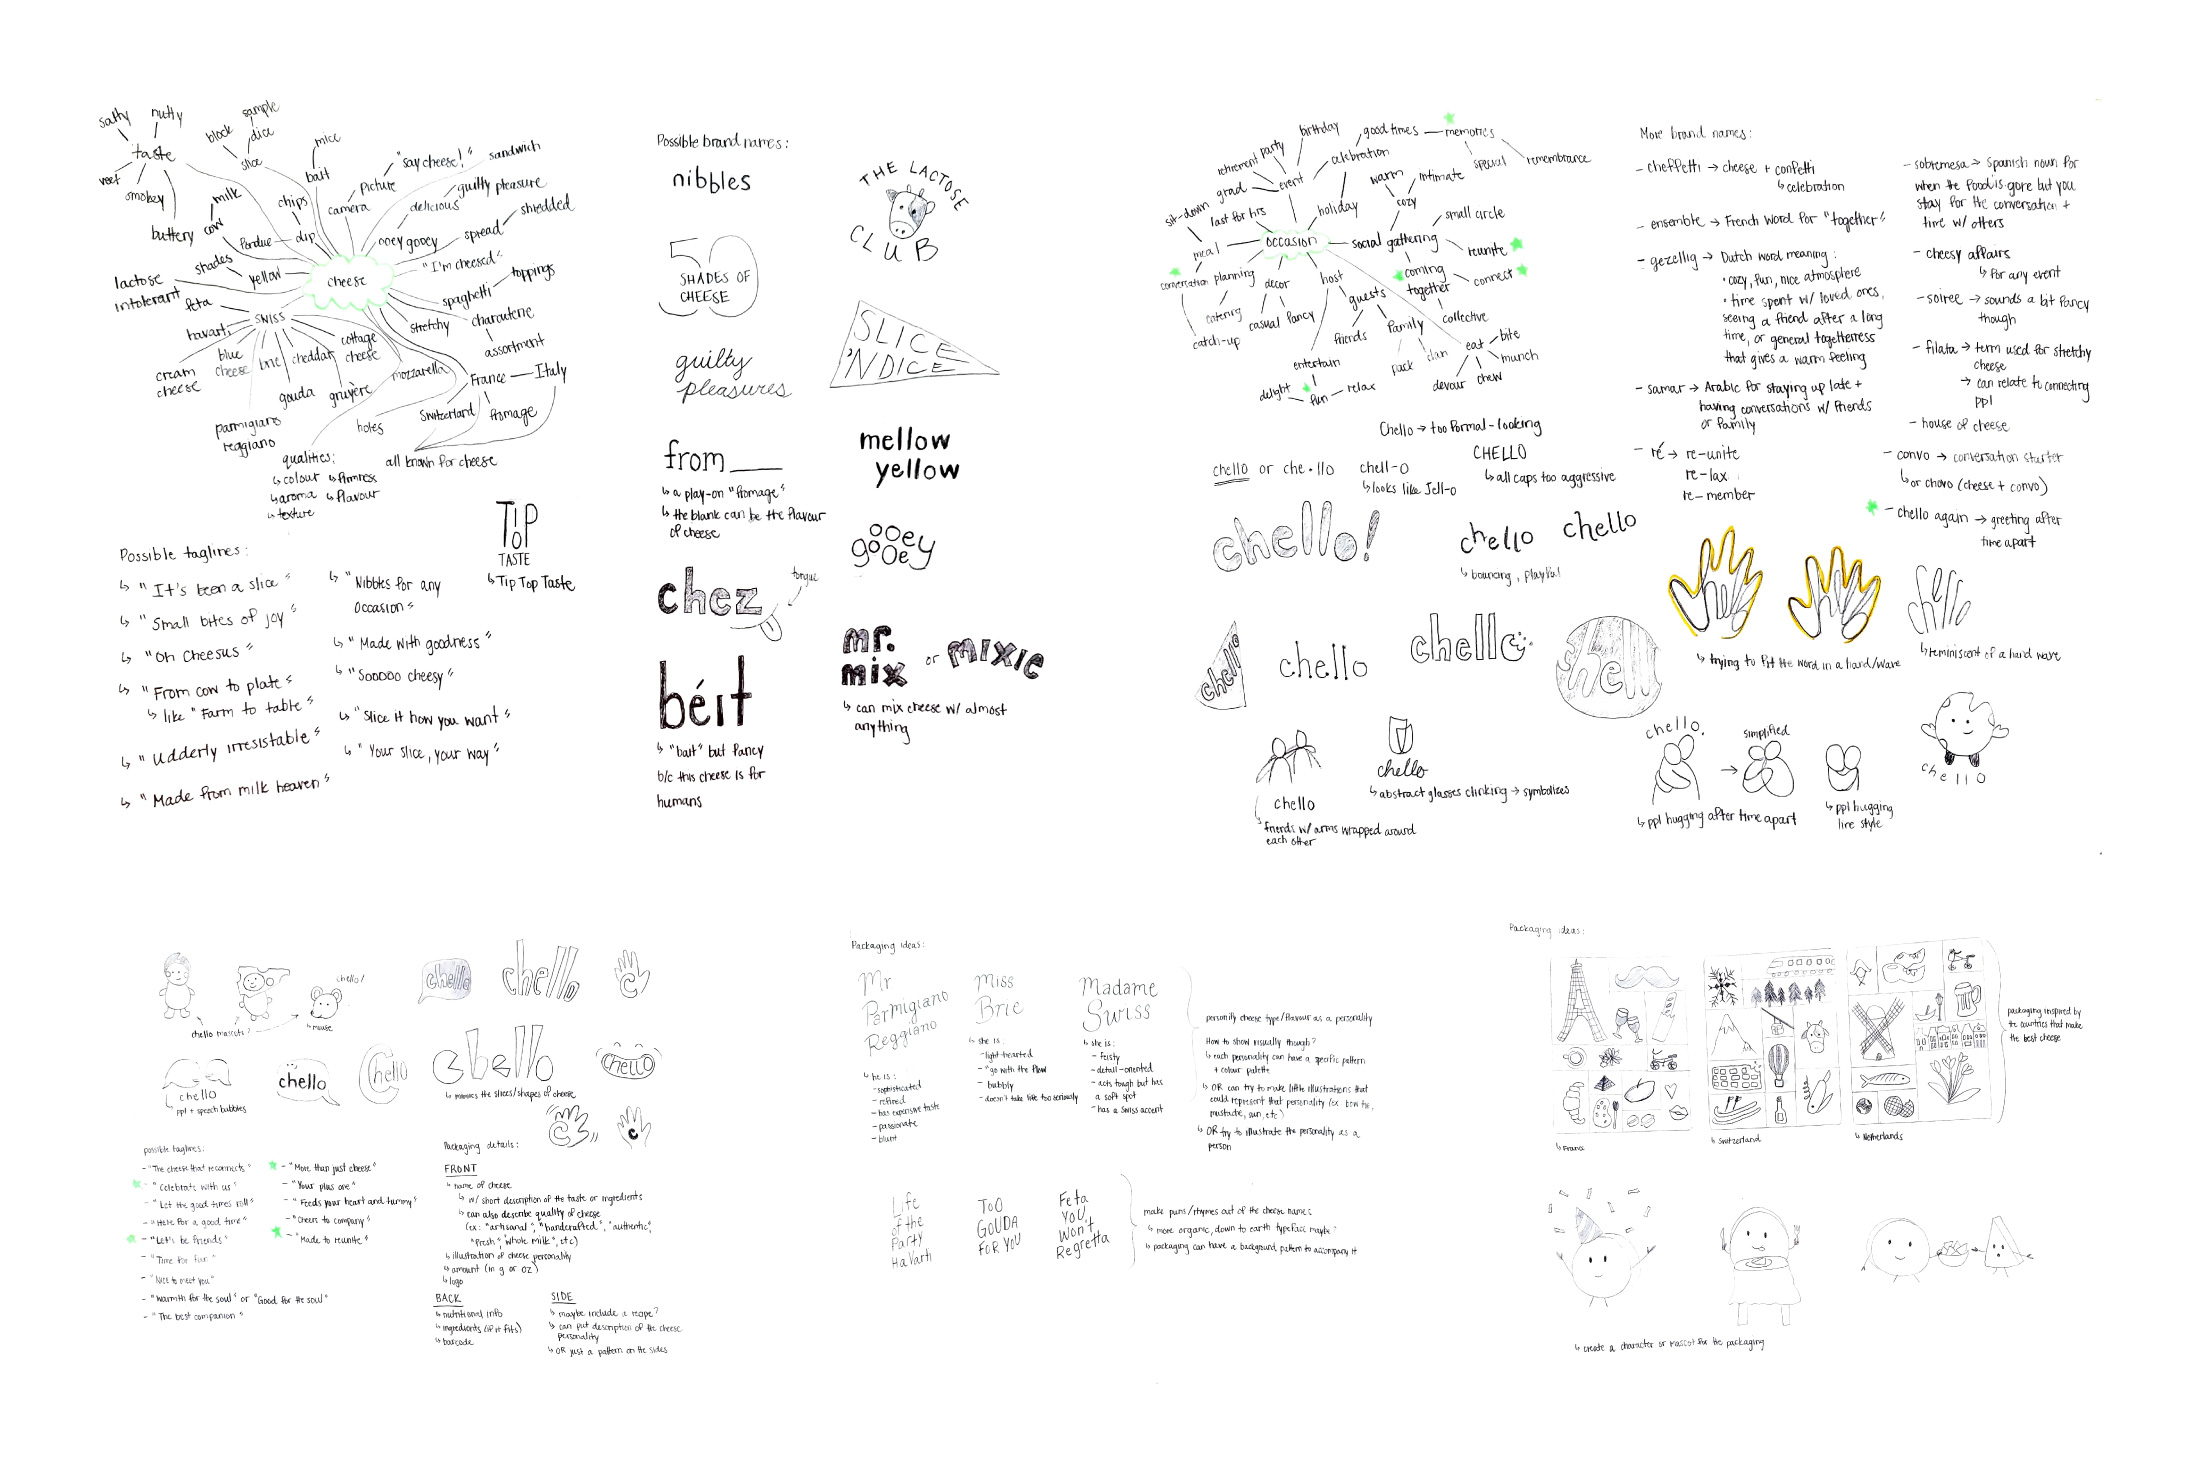 salty
nutty
taste
smokey
buttery
block
sample
dice
slice
mice
bait
milk
cow
chips
dip
"say cheese!"
picture
camera
sandwich
guilty pleasure
delicious
shredded
ooey gooey
spread
"I'm cheesed"
toppings
spaghetti
charcuterie
stretchy
assortment
cheese
shades
yellow
lactose
intolerant
feta
swiss
havarti
blue
cheese
cream
cheese
brie
cheddar
cottage
cheese
gouda
gruyère
mozzarella
parmigiano
reggiano
holes
France
Italy
Switzerland
fromage
all known for cheese
qualities:
↳ colour ↳ firmness
↳ aroma ↳ flavour
↳ texture
TIP
TOP
TASTE
↳ Tip Top Taste
Possible taglines:
↳ "It's been a slice"
↳ "Small bites of joy"
↳ "Oh Cheesus"
↳ "From cow to plate"
↳ like "Farm to table"
↳ "Udderly irresistable"
↳ "Made from milk heaven"
↳ "Nibbles for any
occasion"
↳ "Made with goodness"
↳ "Sooooo cheesy"
↳ "Slice it how you want"
↳ "Your slice, your way"
Possible brand names:
nibbles
THE LACTOSE
CLUB
50
SHADES OF
CHEESE
SLICE
'N DICE
guilty
pleasures
from ___
↳ a play-on "fromage"
↳ the blank can be the flavour
of cheese
mellow
yellow
gooey ooey
chez
tongue
béit
↳ "bait" but fancy
b/c this cheese is for
humans
mr.
mix
or
mixie
↳ can mix cheese w/ almost
anything
occasion
birthday
retirement party
grad
event
celebration
good times
memories
special
remembrance
holiday
warm
intimate
cozy
small circle
social gathering
reunite
connect
coming
together
collective
sit-down
last for hrs
meal
conversation
catch-up
planning
catering
decor
casual
fancy
host
guests
friends
family
pack
clan
entertain
delight
fun
relax
eat
bite
munch
chew
devour
More brand names:
- cheffetti → cheese + confetti
↳ celebration
- ensemble → French word for "together"
- gezellig → Dutch word meaning:
• cozy, fun, nice atmosphere
• time spent w/ loved ones,
seeing a friend after a long
time, or general togetherness
that gives a warm feeling
- samar → Arabic for staying up late +
having conversations w/ friends
or family
- ré → re-unite
re-lax
re-member
- sobremesa → Spanish noun for
when the food is gone but you
stay for the conversation +
time w/ others
- cheesy affairs
↳ for any event
- soiree → sounds a bit fancy
though
- filata → term used for stretchy
cheese
→ can relate to connecting
ppl
- house of cheese
- convo → conversation starter
↳ or chovo (cheese + convo)
- chello again → greeting after
time apart
Chello → too formal-looking
chello or che•llo
chell-o
↳ looks like Jell-o
CHELLO
↳ all caps too aggressive
chello!
chello
chello
↳ bouncing, playful
chello
chello
chello
chello
↳ trying to fit the word in a hand/wave
chello
↳ reminiscent of a hand wave
chello
↳ friends w/ arms wrapped around
each other
chello
↳ abstract glasses clinking → symbolizes
chello.
simplified
↳ ppl hugging after time apart
↳ ppl hugging
line style
chello
chello mascots?
chello!
↳ mouse
chello
chello
c
chello
↳ ppl + speech bubbles
chello
chello
chello
↳ mimics the slices/shapes of cheese
chello
c
c
possible taglines:
- "The cheese that reconnects"
- "Celebrate with us"
- "Let the good times roll"
- "Here for a good time"
- "Let's be friends"
- "Time for fun"
- "Nice to meet you"
- "Warmth for the soul" or "Good for the soul"
- "The best companion"
- "More than just cheese"
- "Your plus one"
- "Feeds your heart and tummy"
- "Cheers to company"
- "Made to reunite"
Packaging details:
FRONT
↳ name of cheese
↳ w/ short description of the taste or ingredients
↳ can also describe quality of cheese
(ex: "artisanal", "handcrafted", "authentic",
"fresh", "whole milk", etc)
↳ illustration of cheese personality
↳ amount (in g or oz)
↳ logo
BACK
↳ nutritional info
↳ ingredients (if it fits)
↳ barcode
SIDE
↳ maybe include a recipe?
↳ can put description of the cheese
personality
↳ OR just a pattern on the sides
Packaging ideas:
Mr
Parmigiano
Reggiano
↳ he is:
- sophisticated
- refined
- has expensive taste
- passionate
- blunt
Miss
Brie
↳ she is:
- light hearted
- "go with the flow"
- bubbly
- doesn't take life too seriously
Madame
Swiss
↳ she is:
- feisty
- detail-oriented
- acts tough but has
a soft spot
- has a Swiss accent
personify cheese type/flavour as a personality
How to show visually though?
↳ each personality can have a specific pattern
+ colour palette
↳ OR can try to make little illustrations that
could represent that personality (ex: bow tie,
mustache, sun, etc)
↳ OR try to illustrate the personality as a
person
Life
of the
Party
Havarti
TOO
GOUDA
FOR YOU
Feta
You
Won't
Regretta
make puns/rhymes out of the cheese names
↳ more organic, down to earth typeface maybe?
↳ packaging can have a background pattern to accompany it
Packaging ideas:
↳ France
↳ Switzerland
↳ Netherlands
packaging inspired by
the countries that make
the best cheese
↳ create a character or mascot for the packaging